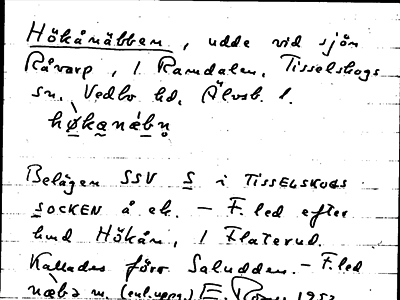 Hökånäbben, udde vid sjön
Råvarp, / Ramdalen, Tisselskogs
sn. Vedbo hd. Älvsb. l.
høkanæbn
Belägen SSV S i TISSELSKOGS
SOCKEN å ek. – F. led efter
hmd Hökån, / Flaterud.
Kallades förr Saludden. – F. led
næbb m. (enl. uppg.) E.